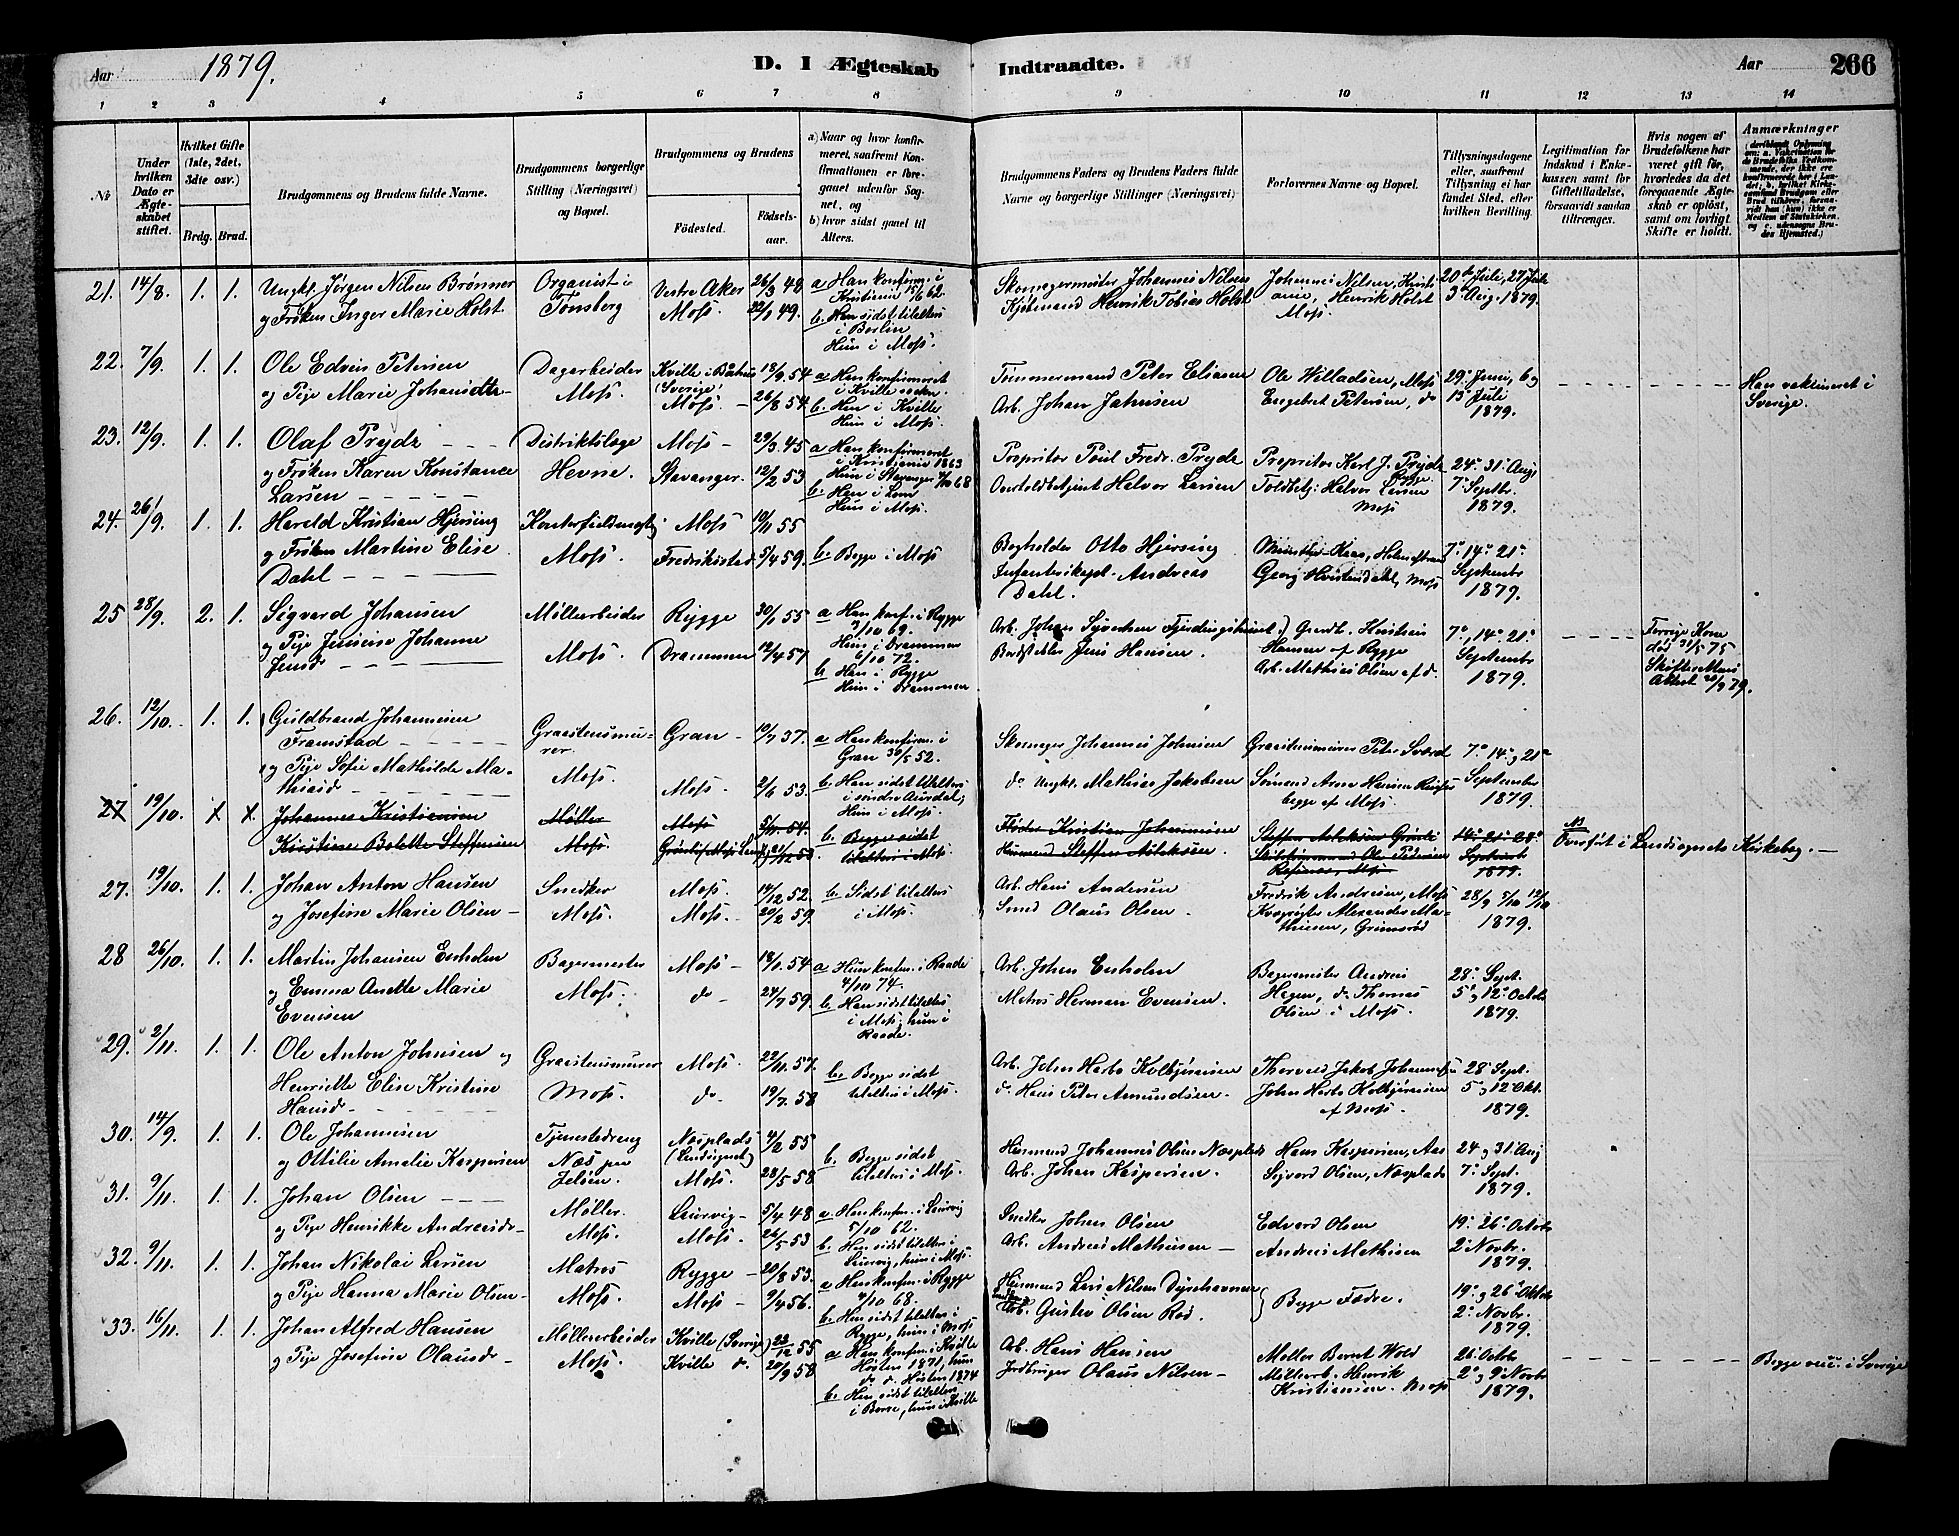 Aar 1879.
D. I Ægteskab Indtraadte.
Aar 266
1 2 3 4 5 6 7 8 9 10 11 12 13 14
Nr.
Under hvilken Dato er Ægteskabet stiftet.
Hvilket Gifte (1ste, 2det, 3dte osv.)
Brdg. Brud.
Brudgommens og Brudens fulde Navne.
Brudgommens borgerlige Stilling (Næringsvei) og Bopæl.
Brudgommens og Brudens
Fødested.
Fødselsaar.
a) Naar og hvor konfirmeret, saafremt Konfirmationen er foregaaet udenfor Sognet, og
b) hvor sidst gaaet til Alters.
Brudgommens Faders og Brudens Faders fulde Navne og borgerlige Stillinger (Næringsvei)
Forlovernes Navne og Bopæl.
Tillysningsdagene eller, saafremt Tillysning ei har fundet Sted, efter hvilken Bevilling.
Legitimation for Indskud i Enkekassen samt for Giftetilladelse, forsaavidt saadan tiltrænges.
Hvis nogen af Brudefolkene har været gift før, hvorledes da det foregaaende Ægteskab er opløst, samt om lovligt Skifte er holdt.
Anmærkninger
21. 14/8. 1. 1. Ungk. Jørgen Nilsen Brønner
og Frøken Inger Marie Holst.
Organist i
Tønsberg
Vestre Aker 26/3 48
Moss. 22/1 49.
a Han konfirm. i
Kristiania 15/6 62.
b. Han sidst til alters
i Berlin
Hun i Moss.
Skomagermester Johannes Nilsen
Kjøbmand Henrik Tobias Holst
Johannes Nilsen, Kristi-
ania, Henrik Holst
Moss.
20de Juli, 27 Juli
3die Aug. 1879.
22. 7/9. 1. 1. Ole Edvin Petersen
og Pige Marie Johansdtr
Dagarbeider
Moss.
Kville i Båhus 18/9 54
(Sverige)
Moss. 26/8 54
a Han konfirmeret
i Kville sockn.
b. Han i Kville
Hun i Moss.
Tømmermand Peter Eliasen
Arb. Johan Jahnsen
Ole Willadsen, Moss
Engebret Petersen, do
29. Juni, 6 og
13 Juli
1879.
Han vakcineret i
Sverige.
23. 12/9. 1. 1. Olaf Prydz
og Frøken Karen Konstance
Larsen
Distriktslæge
Hevne.
Moss 29/3 45
Stavanger. 12/2 53
a Han konfirmeret
i Kristiania 1863
Hun i Stavanger 4/10 68
b. Han i Lom
Hun i Moss.
Propritær Poul Fredr. Prydz
Overtoldbetjent Halvor Larsen
Propritær Karl J. Prydz
Rygge.
Toldbetj. Halvor Larsen
Moss
24. 31. Aug.
7. Septbr.
1879.
24. 26/9. 1. 1. Harald Kristian Hjersing
og Frøken Martine Elise
Dahl
Kontorfuldmægtig
Moss.
Moss 10/11 55
Fredrikstad 5/4 59.
b. Begge i Moss
Bogholder Otto Hjersing
Infanterikapt. Andreas
Dahl.
Georg Hvistendahl, Moss
7. 14. 21.
Septembr
1879.
25 28/9. 2. 1. Sigvard Johansen
og Pige Jensine Johanne
Jensd.
Møllearbeider
Moss.
Rygge 30/1 55
Drammen 12/4 57
a Han konf. i Rygge
3/10 69.
Hun i Drammen
6/10 72.
b Han i Rygge
Hun i Drammen
Arb. Johan Syvertsen
Jens Hansen.
Gaardb. Kristian
Hansen af Rygge
Arb. Mathias Olsen af do.
7., 14. 21.
Septembr
1879.
Forrige Kone
død 31/5 75
26. 12/10. 1. 1. Guldbrand Johannesen
Framstad
og Pige Sofie Mathilde Ma-
thiasd.
Graastensmu-
rer.
Moss.
Gran 10/7 37.
Moss. 2/6 53.
a Han konfirm. i
Gran 30/5 52.
b. Han sidst til alters
i søndre Aurdal;
Hun i Moss.
Skomager Johannes Johnsen
do Ungk. Mathias Jakobsen
Graastensmurer Peter Sværd
Sømand Arne Hansen
begge af Moss.
7. 14. og 21.
September
1879.
27 19/10. Johannes Kristiansen
Kirstine Bolette Steffensen
Møller
Moss.
Moss 5/11 54.
b. Begge sidst
til alters i Moss.
Fløter Kristian Johannesen
Husmand Steffen Aslaksen.
Steffen Aslaksen
Ole Pedersen
14. 21. 28.
Septembr
1879.
NB
Overført i Landsognets Kirkebog.
27. 19/10. 1. 1. Johan Anton Hansen
og Josefine Marie Olsen
Snedker
Moss.
Moss. 14/12 52.
Moss. 20/2 59.
b. Sidst til alters
i Moss.
Arb. Hans Andersen
Smed Olaus Olsen.
Fredrik Andresen, Moss
Alexander Ma-
thiesen, Grimsrød
28/9 5/10 12/10
1879.
28 26/10. 1. 1. Martin Johansen Enholm
og Emma Anette Marie
Evensen
Bagermester
Moss.
Moss 18/1 54
do 24/7 59.
a Hun konfm. i Raade
4/10 74.
b. Han sidst til alters
i Moss, hun i
Raade.
Arb. Johan Enholm
Matros Herman Evensen.
Bagermester Andreas
Hagen, do Thomas
Olsen i Moss.
28. Sept.
5. og 12. Octob.
1879.
29. 2/11. 1. 1. Ole Anton Johnsen og
Henriette Elise Kristine
Hansd.
Graastensmurer
Moss.
Moss. 22/11 57.
do 19/7 58
b. Begge sidst
til alters i Moss.
Arb. John Harbo Kolbjørnsen
do. Hans Peter Amundsen.
Thorvald Jakob Johannesen
John Harbo Kolbjørnsen
af Moss.
28 Sept.
5. og 12. Okt.
1879.
30. 14/9. 1. 1. Ole Johannesen
og Ottilie Amalie Kaspersen
Tjenestedreng
Næs paa
Jeløen.
Næsplads 4/2 55
(Landsognet)
Moss. 28/5 58
b. Begge sidst
til alters i Moss.
Husmand Johannes Olsen Næsplads
Arb. Johan Kaspersen.
Hans Kaspersen, Aas
Sigvard Olsen, Næsplads
24 og 31. Aug
7. Sept.
1879.
31. 9/11. 1. 1. Johan Olsen
og Pige Henrikke Andreasdr.
Møller.
Moss.
Laurvig 5/4 48
Moss. 26/5 53
a. Han konfm. i Laurvig
5/10 62.
b. Han sidst til alters i
Laurvig, hun i Moss.
Snedker Johan Olsen
Arb. Andreas Mathiesen
Edvard Olsen
Andreas Mathisen
19. 26. Octobr
2. Novbr.
1879.
32. 9/11. 1. 1. Johan Nikolai Larsen
og Pige Hanna Marie Olsen
Matros
Moss.
Rygge 20/8 53.
Moss 9/4 56.
a Han konfm. i Rygge
4/10 68.
b. Han sidst til alters i
Rygge, hun i Moss
Husmand Lars Nilsen Dyrehavnen
Gustav Olsen Rød.
Begge Fædre.
19. og 26. Oktobr
2. Novbr.
1879.
33. 16/11. 1. 1. Johan Alfred Hansen
og Pige Josefine Olausdr.
Møllearbeider
Moss.
Kville (Sverige) 22/12 55
Kville do. 20/9 58
a Han konfm. i Kville
Høsten 1871, hun
do. do. Høsten 1874
b. Han sidst til alters
i Borre, hun i Kville
Arb. Hans Hansen
Jordbruger Olaus Nilsen
Møller Bernt Wold
Møllearb. Henrik
Kristiansen. Moss
26. Octobr
2. og 9. Novbr
1879.
Begge vacc. i Sverige